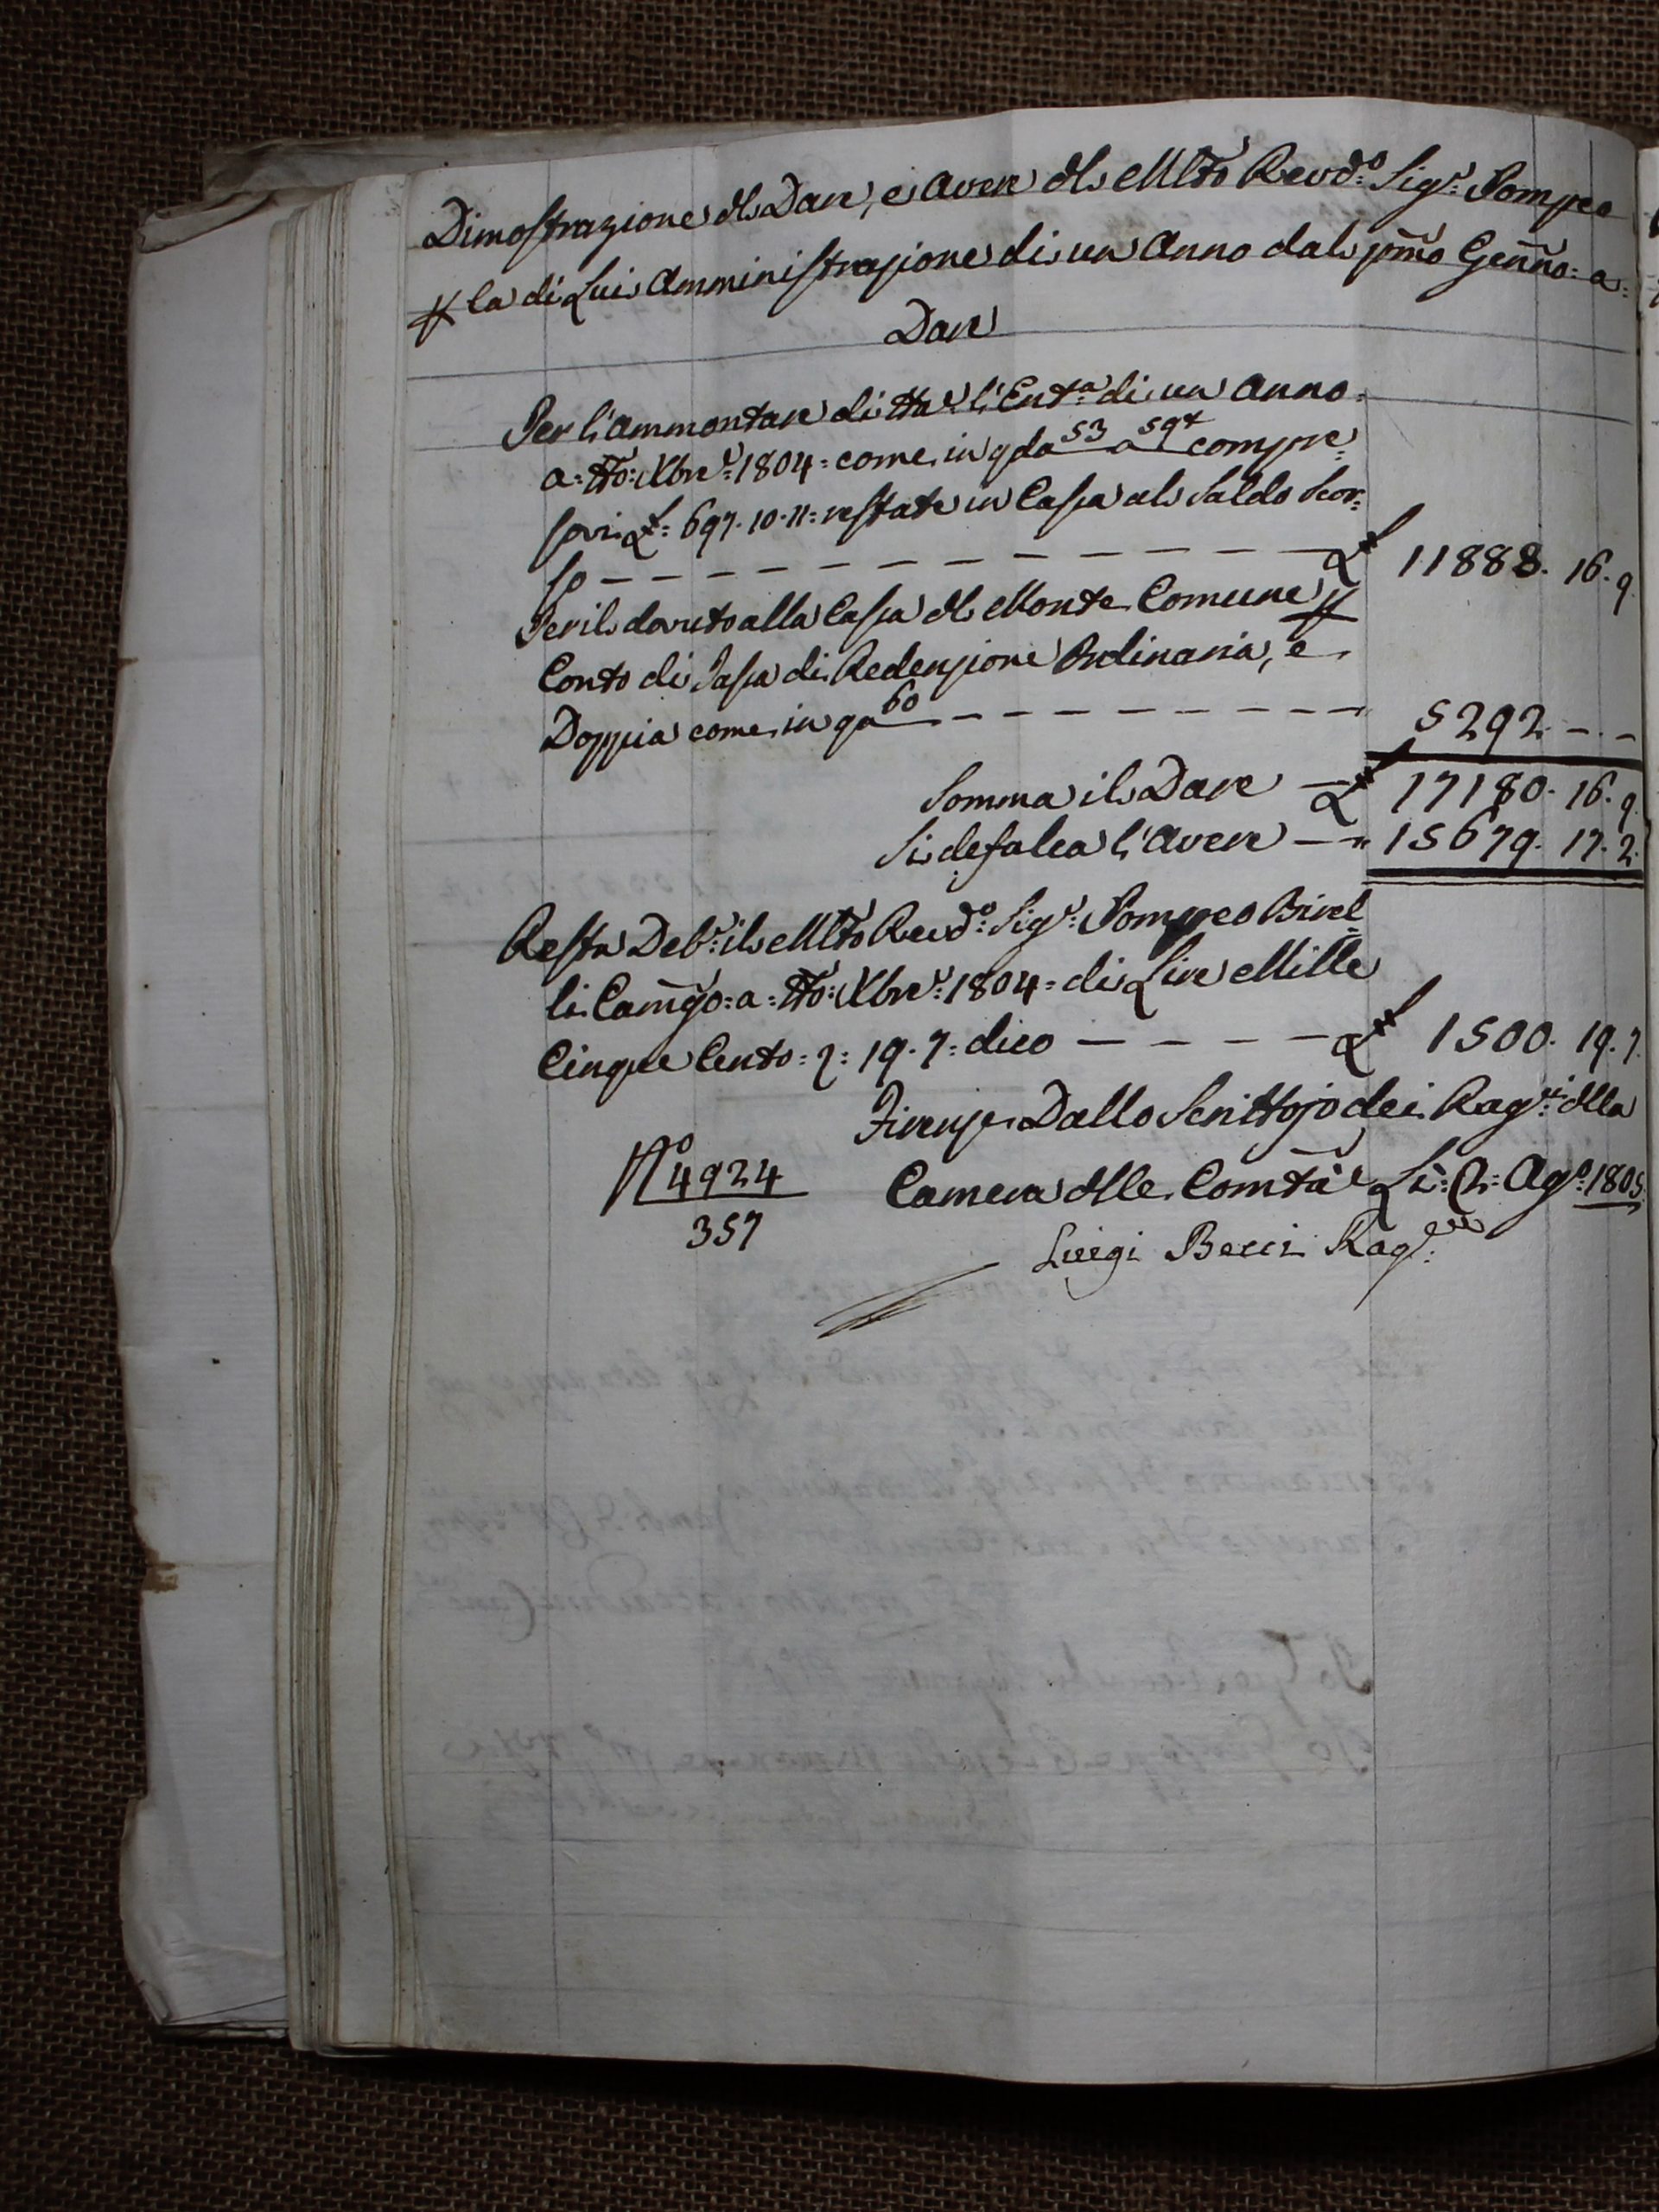 Dimostrazione dl Dare, e Avere dl Mlto Revdo: Sigr: Pompeo
p la di Lui Amministrazione di un Anno dal pmo Genno: a:
Dare
Per l'ammontare di tta l'Enta: di un Anno
a: tto: Xbre: 1804= come in qda 53 a 59t compre=
sovi £: 697. 10. 11= restate in Cassa al Saldo Scor=
so — — — — — — — — — £ 11888. 16. 9
Per il dovuto alla Cassa dl Monte Comune p
Conto di Tassa di Redenzione Ordinaria, e
Doppia come in qa 60 — — — — — — — " 5292. -. -
Somma il Dare — £ 17180. 16. 9
Si defalca l'Avere — " 15679. 17. 2.
Resta Debr: il Mlto Revdo: Sigr: Pompeo Birel=
li Camgo: a: tto: Xbre: 1804= di Lire Mille
Cinque Cento= 2: 19. 7= dico — — — — £ 1500. 19. 7.
Firenze Dallo Scrittojo dei Ragri: dlla
Camera dlle Comtà Li: 2: Ago: 1805.
No 4924
357
Luigi Becci Ragre: